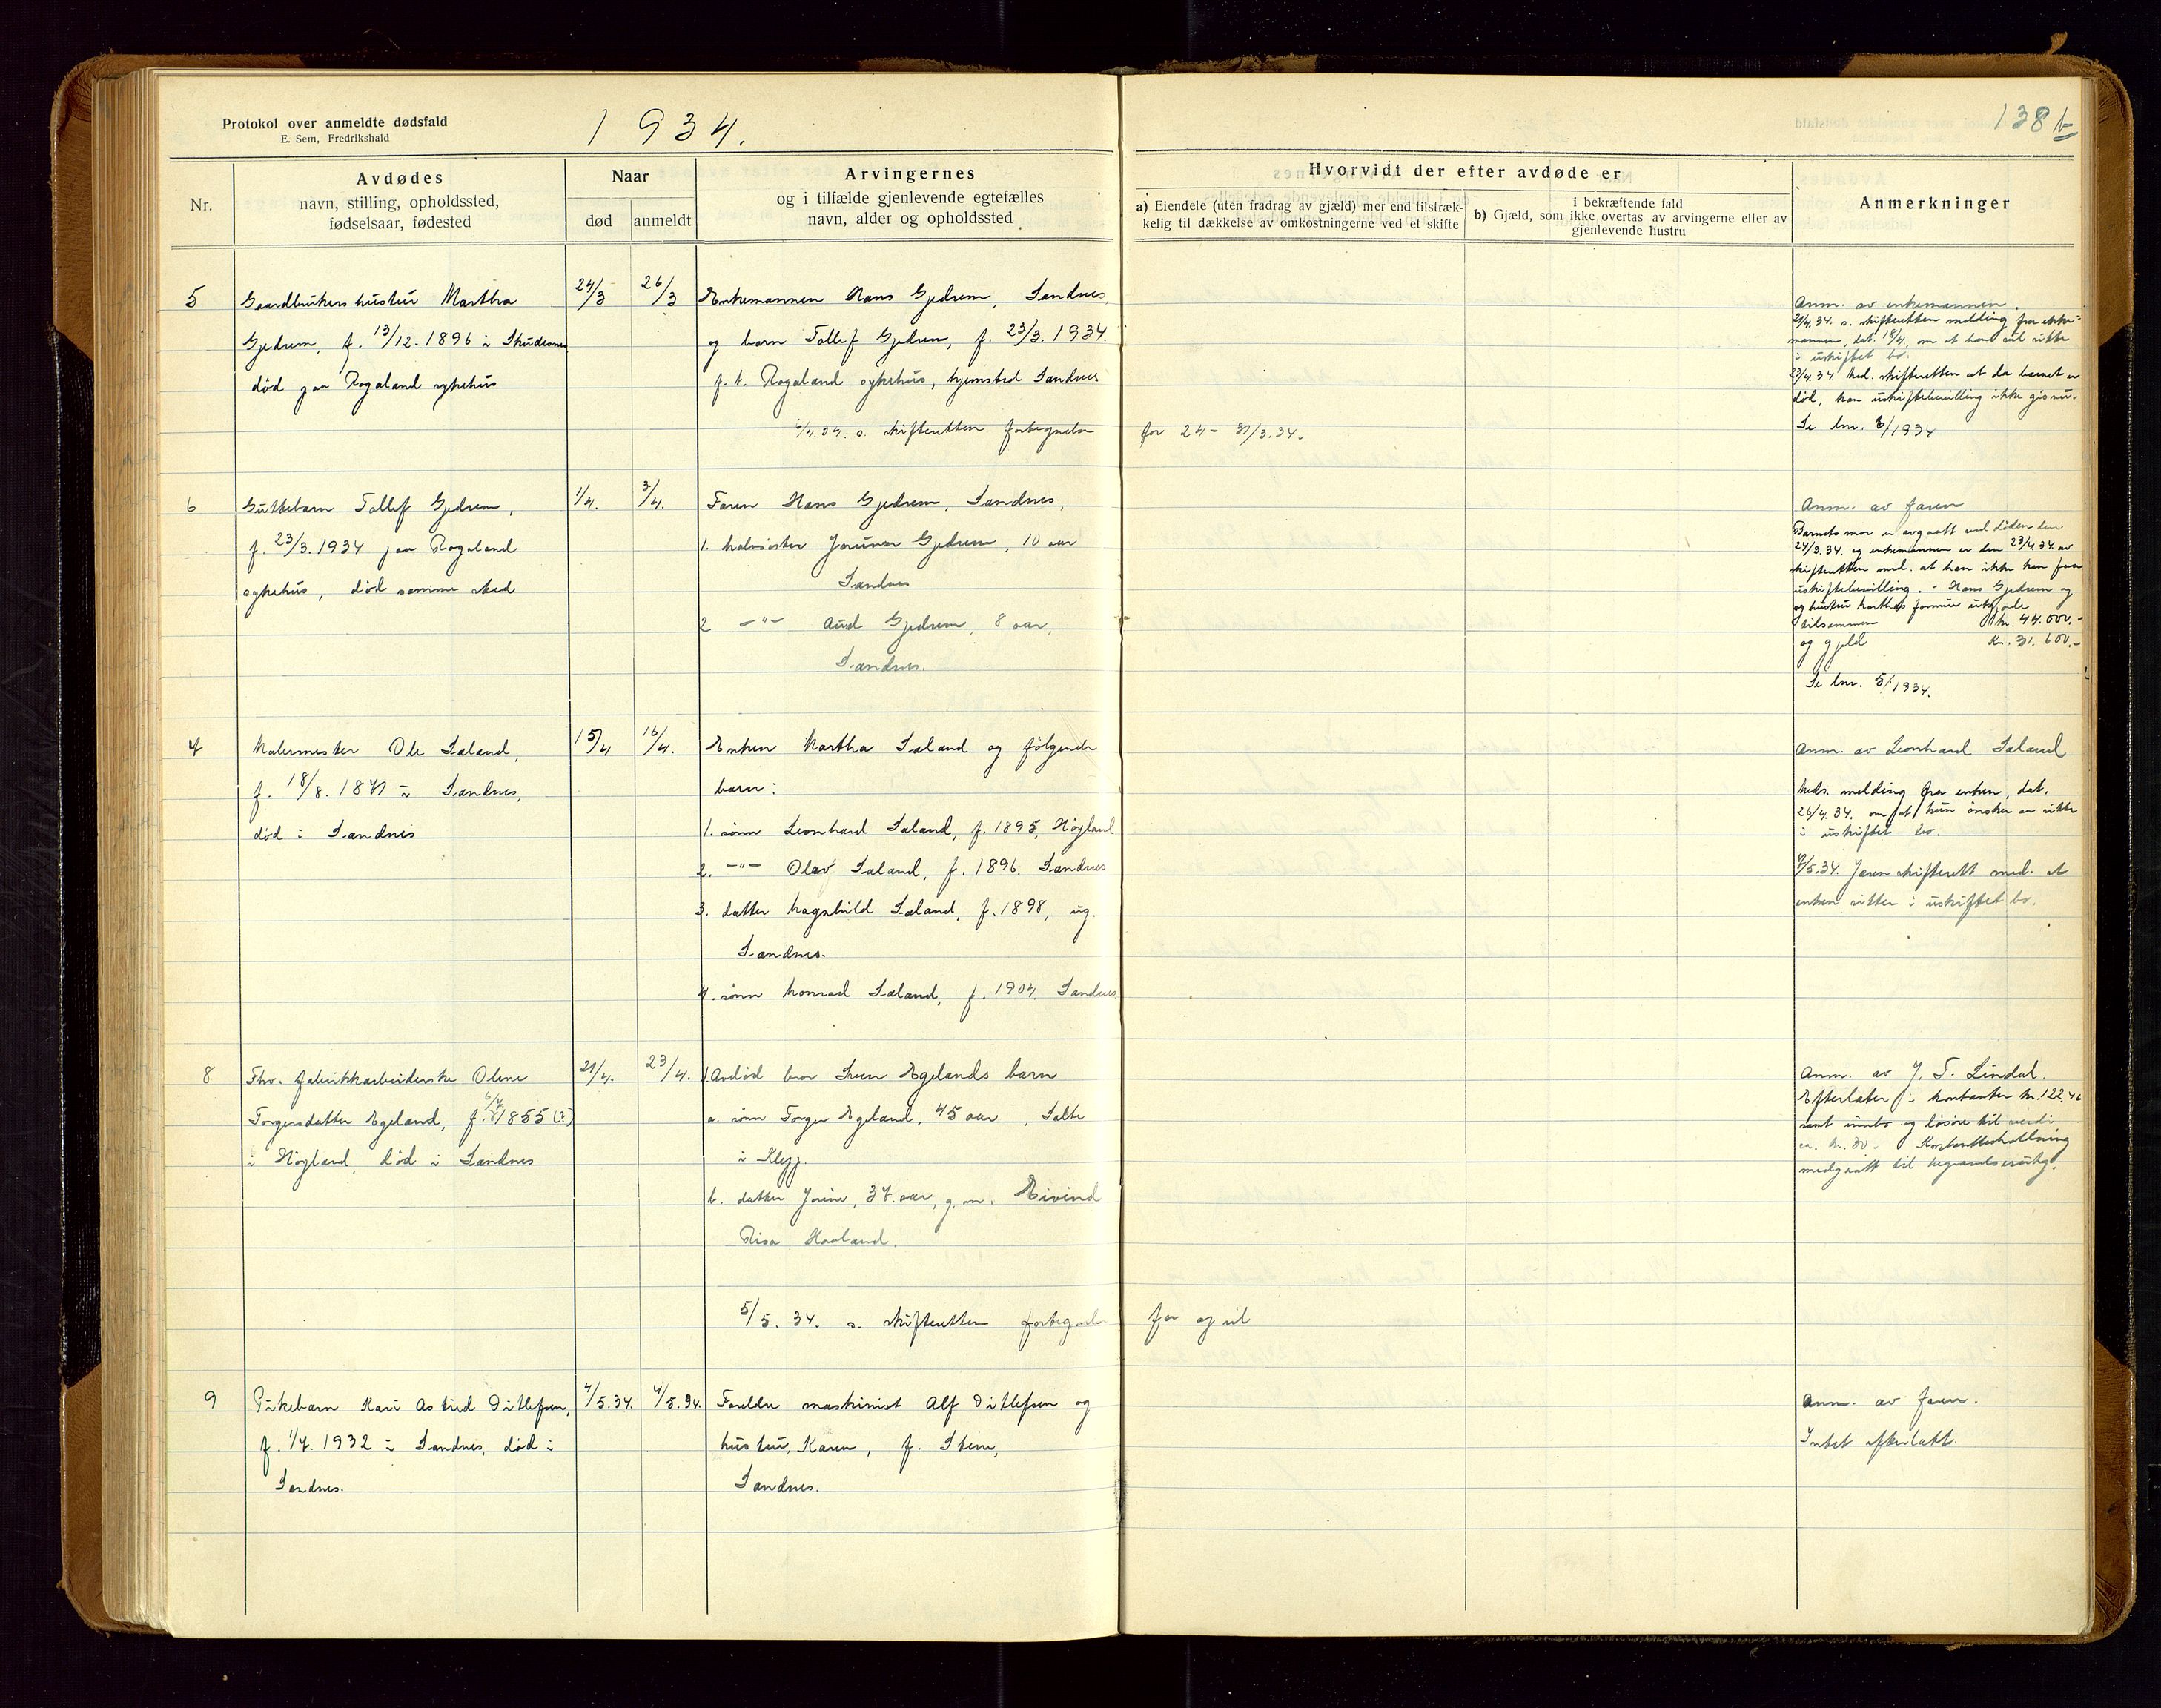 Protokol over anmeldte dødsfald
E. Sem, Fredrikshald
1934.
138 b
Nr.
Avdødes
navn, stilling, opholdssted,
fødselsaar, fødested
Naar
død
anmeldt
Arvingernes
og i tilfælde gjenlevende egtefælles
navn, alder og opholdssted
Hvorvidt der efter avdøde er
a) Eiendele (uten fradrag av gjæld) mer end tilstræk-
kelig til dækkelse av omkostningerne ved et skifte
i bekræftende fald
b) Gjæld, som ikke overtas av arvingerne eller av
gjenlevende hustru
Anmerkninger
5
Gaardbrukers hustru Martha
Gjedrem, f. 13/12. 1896 i Skudesnes
død paa Rogaland sykehus
24/3
26/3
Enkemannen Hans Gjedrem, Sandnes,
og barn Tollef Gjedrem, f. 23/3. 1934.
f. t. Rogaland sykehus, hjemsted Sandnes
34. s. skifteretten fortegnelse
for 24 - 31/3.34.
Anm. av enkemannen.
21/4.34. s. skifteretten melding fra enke-
mannen, dat. 18/4, om at han vil sitte
i uskiftet bo.
23/4.34. Med. skifteretten at da barnet er
død, kan uskiftebevilling ikke gis nu.
Se lnr. 6/1934
6
Guttebarn Tollef Gjedrem,
f. 23/3. 1934 paa Rogaland
sykehus, død samme sted
1/4.
3/4.
Faren Hans Gjedrem, Sandnes,
1. halvsøster Jorunn Gjedrem, 10 aar
Sandnes
2 -"- Aud Gjedrem, 8 aar,
Sandnes.
Anm. av faren
Barnets mor er avgaatt ved døden den
24/3.34. og enkemannen er den 23/4.34 av
skifteretten med. at han ikke kan faa
uskiftebevilling. - Hans Gjedrem og
og hustru Marthas formue utgjorde
tilsammen kr. 44.000.-
og gjeld Kr. 31.600.-
Se lnr. 5/1934.
7
Malermester Ole Sæland,
f. 18/8. 1871 i Sandnes,
død i Sandnes
15/4
16/4.
Enken Martha Sæland og følgende
barn:
1. sønn Leonhard Sæland, f. 1895, Høyland
2. -"- Olav Sæland, f. 1896. Sandnes
3. datter Magnhild Sæland, f. 1898, ug.
Sandnes.
4. sønn Konrad Sæland, f. 1904. Sandnes
Anm. av Leonhard Sæland
Meds. melding fra enken, dat.
26/4.34. om at hun ønsker at sitte
i uskiftet bo.
9/5.34. Jæren skifterett med. at
enken sitter i uskiftet bo.
8
Fhv. fabrikkarbeiderske Olene
Torgersdatter Egeland, f. 1855 (?)
i Høyland, død i Sandnes
21/4.
23/4.
1. Avdød bror Sven Egelands barn
a. sønn Torger Egeland, 45 aar, Salte
i Klepp.
b. datter Jorine, 37 aar, g. m. Eivind
Risa Haaland.
5/5. 34. s. skifteretten fortegnelse
for april
Anm. av J. T. Lindal.
Efterlater i kontanter kr. 122,46
samt innbo og løsøre til verdi
ca. kr. 30.- Kontantbeholdning
medgaatt til begravelsesutg.
9
Pikebarn Kari Astrid Ditlefsen,
f. 1/7. 1932 i Sandnes, død i
Sandnes.
4/5.34.
4/5.34.
Foreldre maskinist Alf Ditlefsen og
hustru, Karen, f. Stene,
Sandnes.
Anm. av faren.
Intet efterlatt.